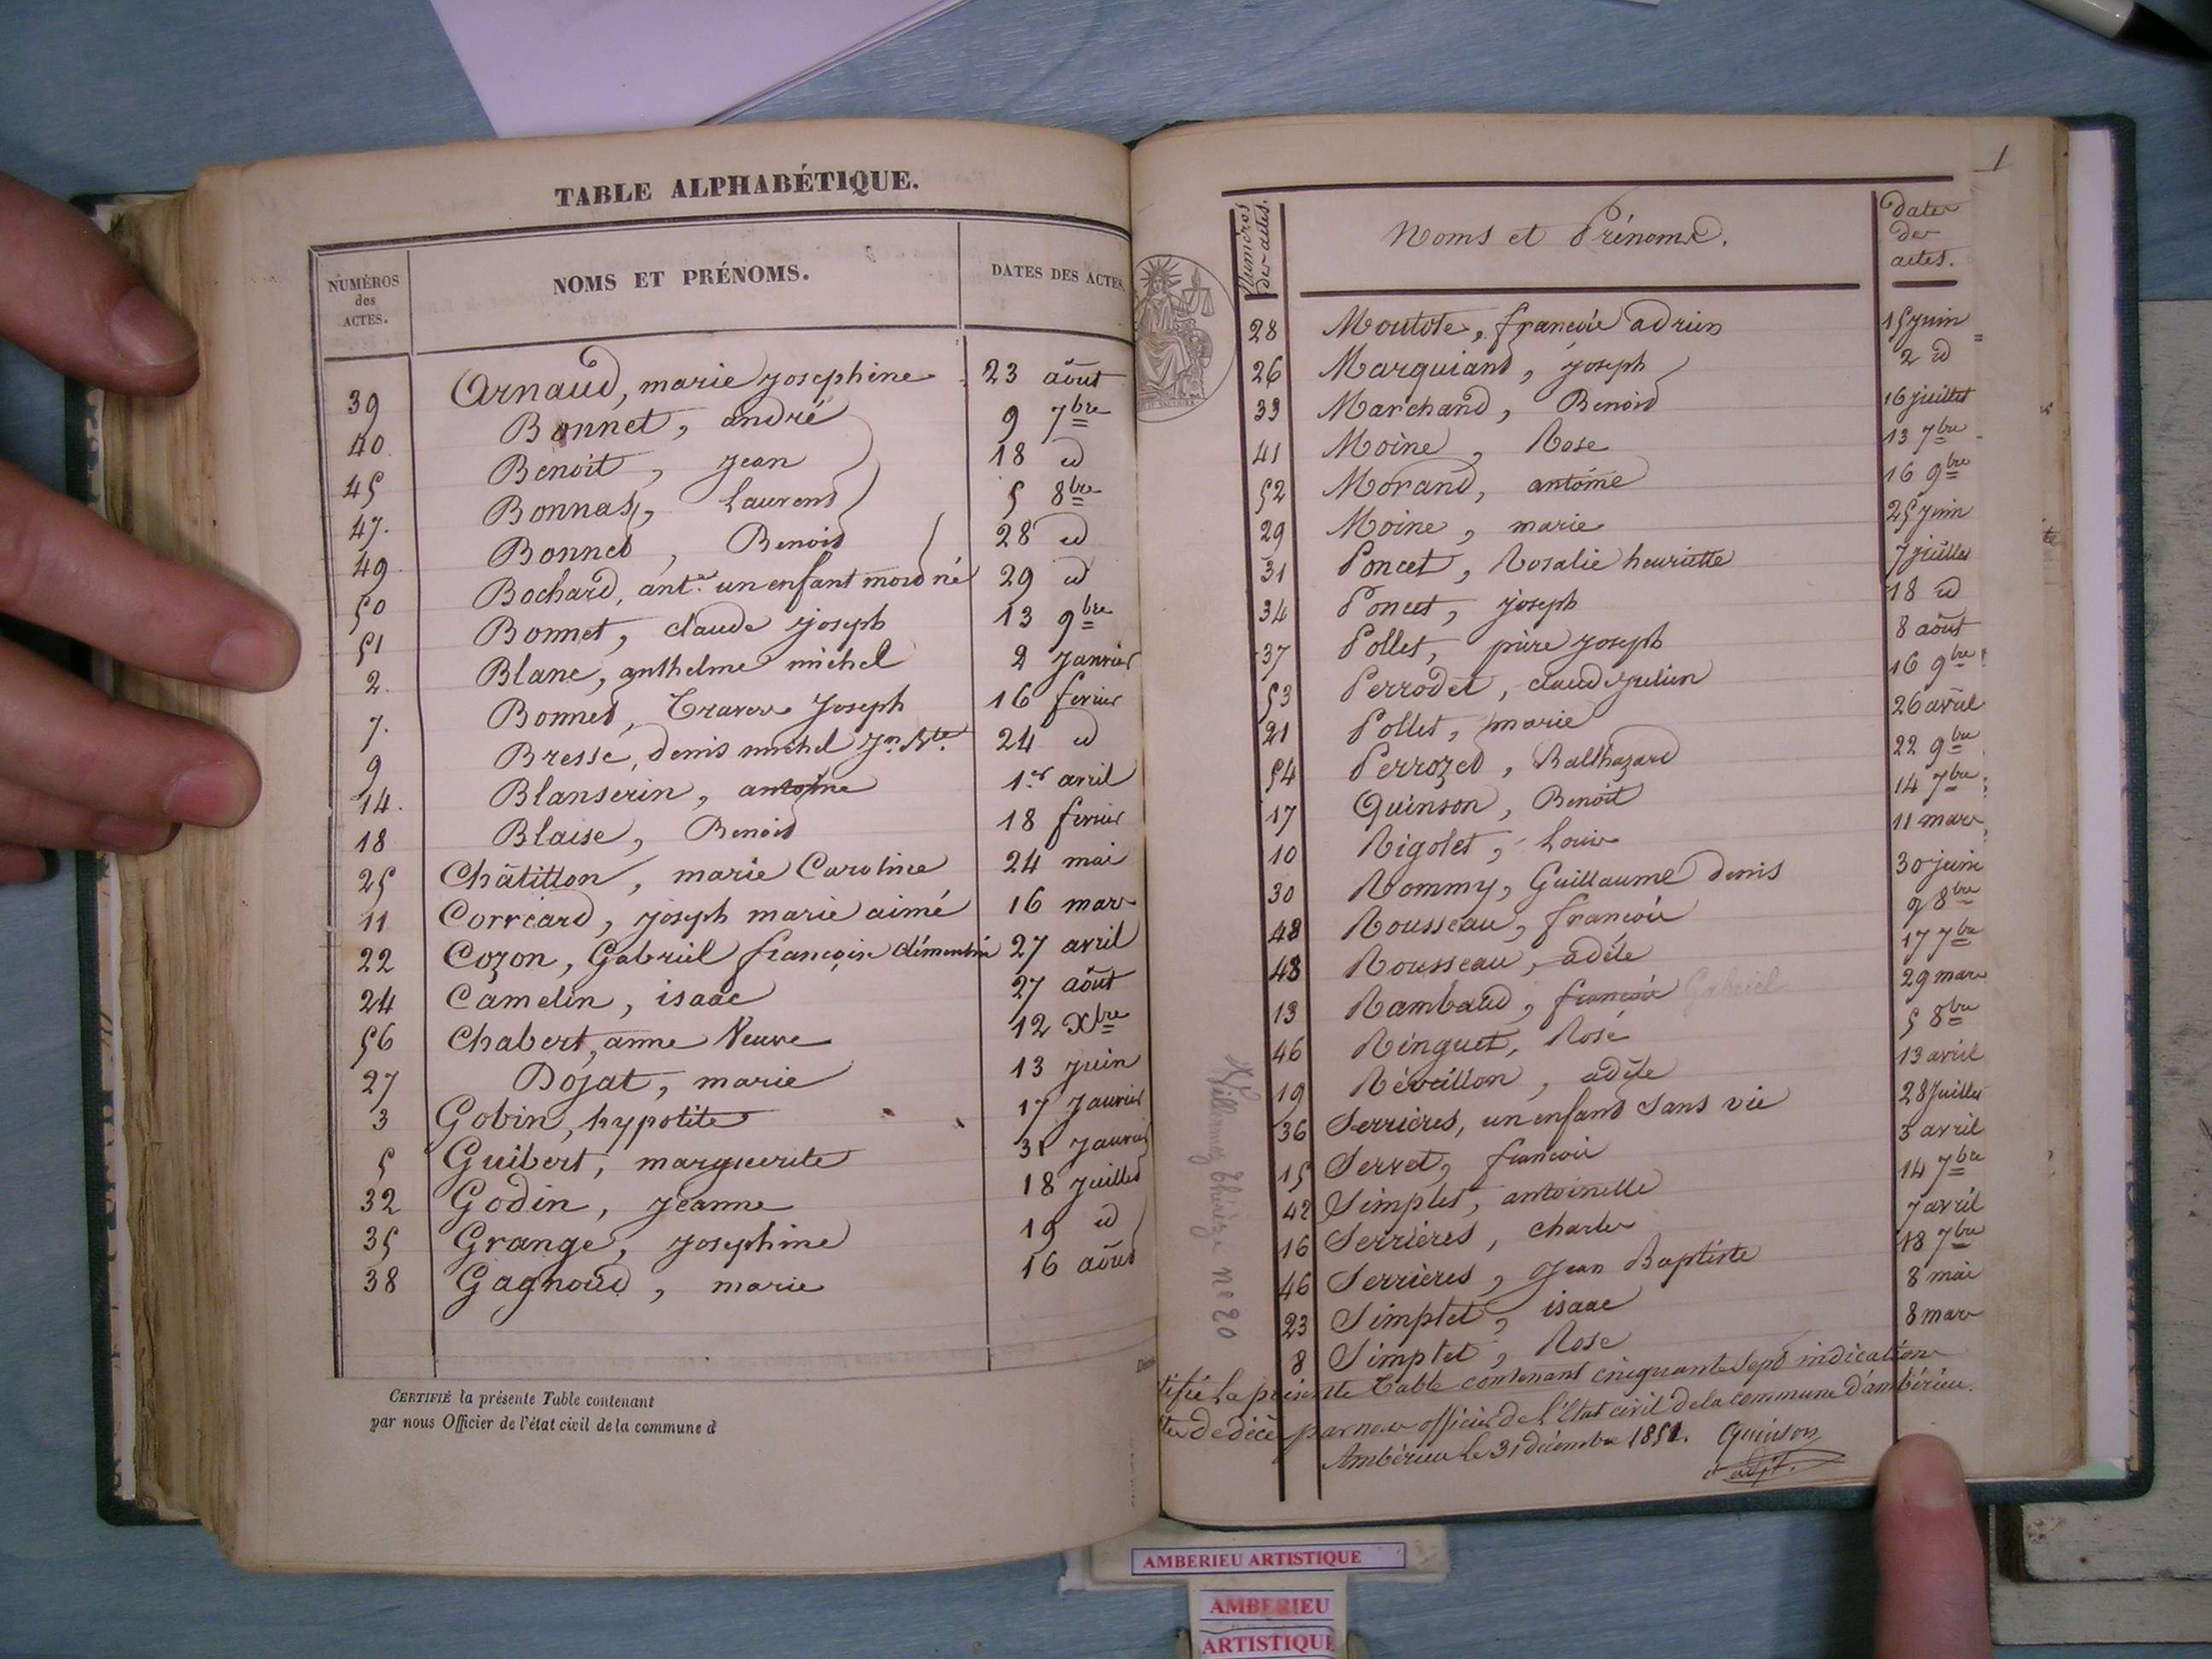 TABLE ALPHABÉTIQUE.
NUMÉROS des ACTES. NOMS ET PRÉNOMS. DATES DES ACTES
39 Arnaud, marie josephine 23 août
40. Bonnet, andré 9 7bre
45 Benoit, jean 18 id
47. Bonnas, Laurent 5 8bre
49 Bonnet, Benoit 28 id
50 Bochard, ant.e un enfant mort né 29 id
51 Bonnet, claude joseph 13 9bre
2. Blanc, anthelme michel 2 janvier
7. Bonnet, Joseph 16 fevrier
9 Bresse, denis michel 24 id
14. Blanserin, antoine 1.er avril
18 Blaise, Benoit 18 fevrier
25 Châtillon, marie Caroline 24 mai
11 Corréard, joseph marie aimé 16 mars
22 Cozon, Gabriel françois 27 avril
24 Camelin, isaac 27 août
56 Chabert, anne Veuve 12 Xbre
27 Dojat, marie 13 juin
3 Gobin, hypolite 17 Janvier
5 Guibert, marguerite 31 Janvier
32 Godin, jeanne 18 juillet
35 Grange, josephine 19 id
38 Gagnoud, marie 16 août
CERTIFIÉ la présente Table contenant
par nous Officier de l'état civil de la commune d
1
Numéros des actes. Noms et Prénoms. Dates des actes.
28 Moutote, françois adrien 15 juin
26 Marquiand, joseph 2 id
33 Marchand, Benoit 16 juillet
41 Moine, Rose 13 7bre
52 Morand, antoine 16 9bre
29 Moine, marie 25 juin
31 Poncet, Rosalie henriette 7 juillet
34 Poncet, joseph 18 id
37 Pollet, joseph 8 août
53 Perrodet, claude julien 16 9bre
21 Pollet, marie 26 avril
54 Perrozet, Balthazard 22 9bre
17 Quinson, Benoit 14 7bre
10 Rigolet, Louis 11 mars
30 Rommy, Guillaume denis 30 juin
48 Rousseau, françois 9 8bre
48 Rousseau, adèle 17 7bre
13 Rambaud, françois Gabriel 29 mars
46 Ringuet, Rose 5 8bre
19 Réveillon, adèle 13 avril
36 Serrières, un enfant sans vie 28 juillet
15 Servet, françois 3 avril
42 Simplet, antoinette 14 7bre
16 Serrières, charles 7 avril
46 Serrières, jean Baptiste 18 7bre
23 Simplet, isaac 8 mai
8 Simplet, Rose 8 mars
tifié la présente Table contenant cinquante sept indications
de décès par nous officier de l'état civil de la commune d'ambérieu.
Ambérieu le 31 décembre 1851. Quinson
adjt.
n° 20
AMBERIEU ARTISTIQUE
AMBERIEU
ARTISTIQUE